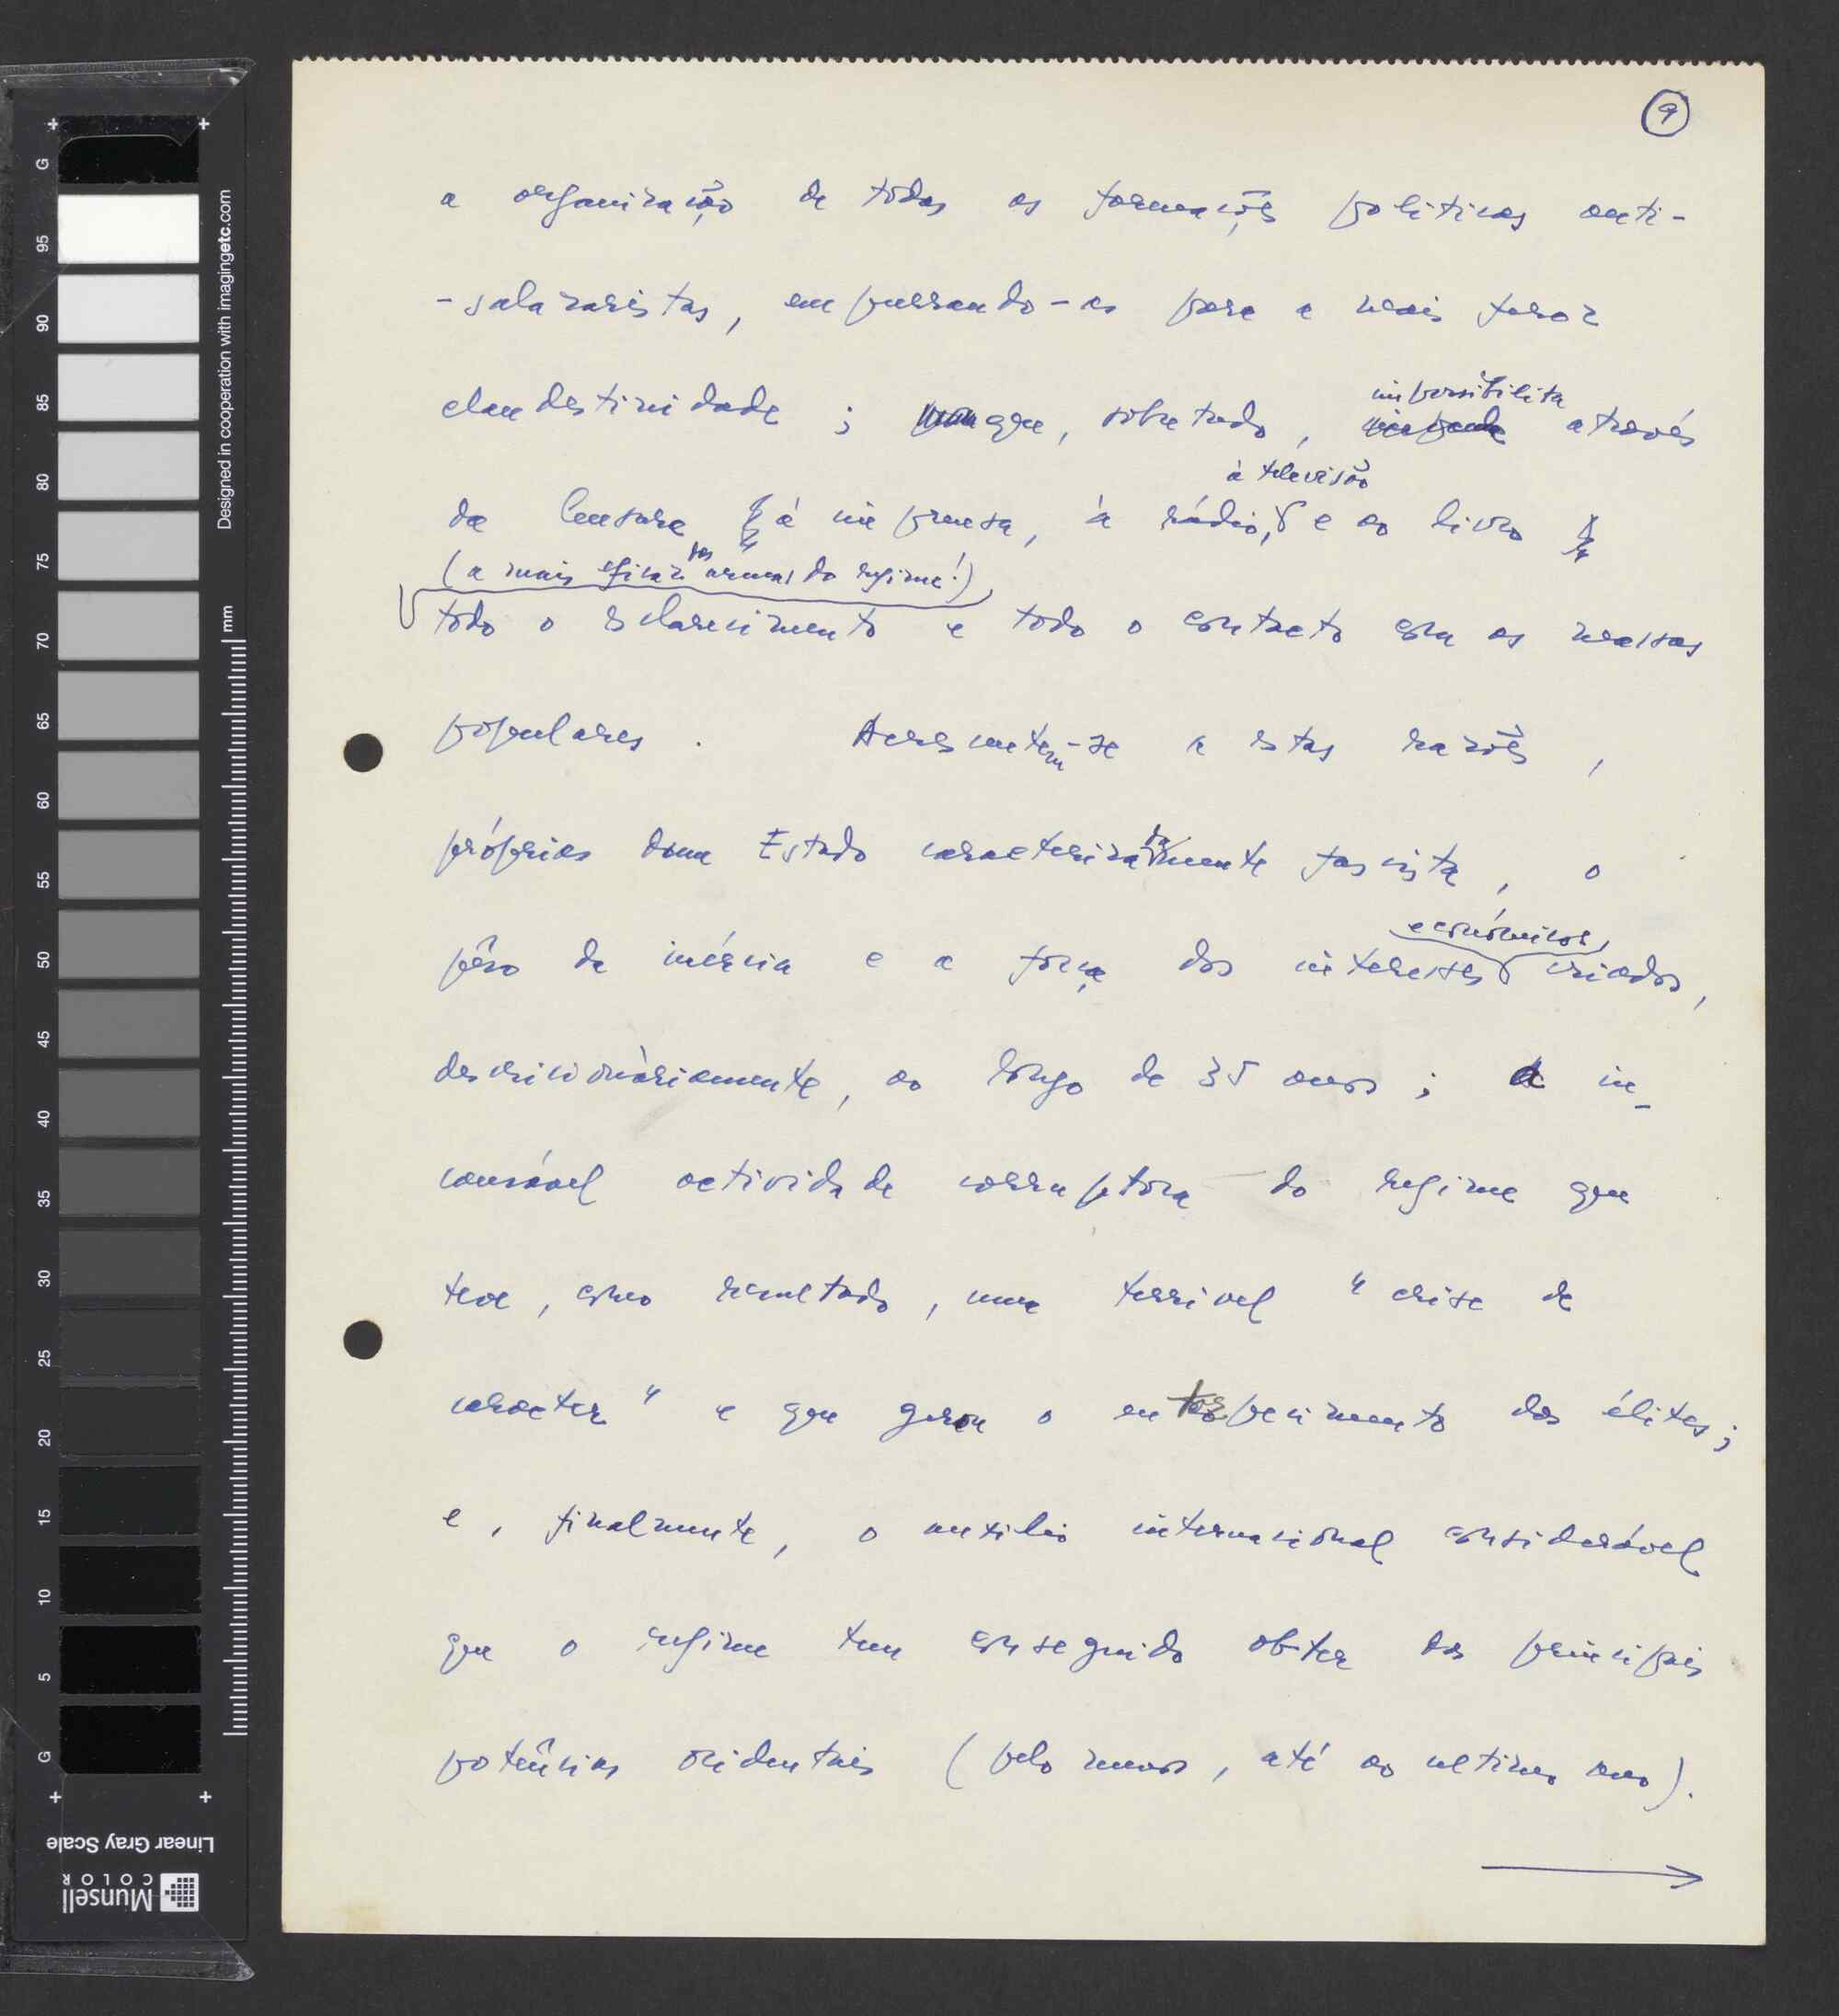 9
a organização de todas as formações políticas anti-
-salazaristas, empurrando-as para a mais feroz
impossibilita
clandestinidade ; que, sobretudo, através
à televisão
da Censura à imprensa, à rádio, e ao livro
(a mais eficaz das armas do regime!)
todo o esclarecimento e todo o contacto com as massas
populares . Acrescentem-se a estas razões ,
próprias dum Estado caracterizadamente fascista , o
económicos
pêso da inércia e a força dos interesses criados,
descricionàriamente, ao longo de 35 anos ; a in-
cansável actividade corruptora do regime que
teve, como resultado, uma terrivel "crise de
caracter" e que gerou o entorpecimento das élites;
e, finalmente, o auxilio internacional considerável
que o regime tem conseguido obter das principais
potências ocidentais (pelo menos, até ao ultimo ano).
G 95 90 85 80 75 70 65 60 55 50 45 40 35 30 25 20 15 10 5 G
Designed in cooperation with imagingetc.com
mm
Linear Gray Scale
Munsell
COLOR